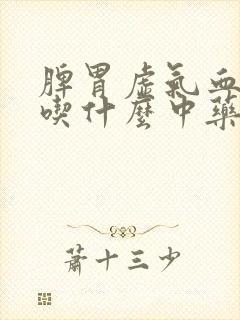 脾胃虛氣血
喫什麼中藥
蕭十三少